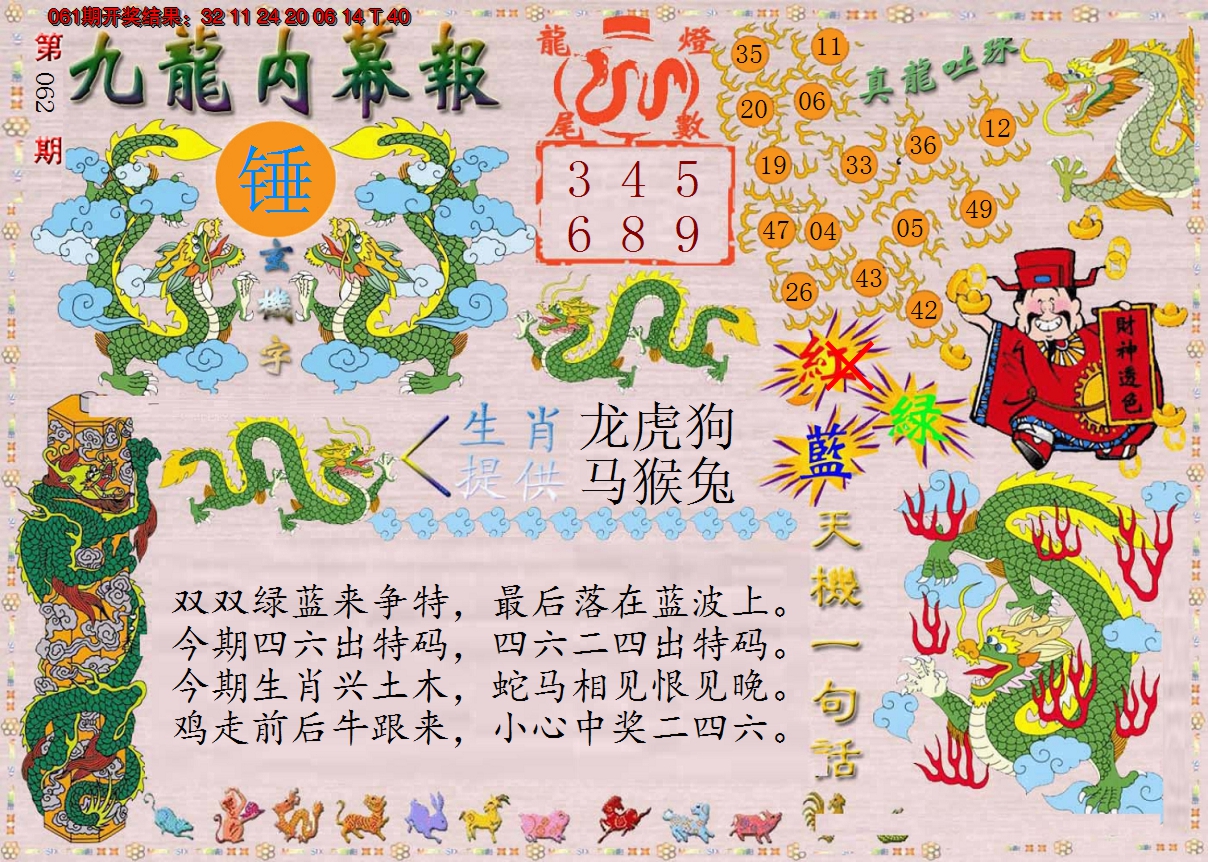 061期开奖结果：32 11 24 20 06 14 T 40
第062期
九龍内幕報
锤
玄機字
龍燈
尾數
3 4 5
6 8 9
真龍吐珠
35 11
20 06
19 33 36 12
47 04 05 49
26 43 42
財神透色
紅
绿
藍
生肖提供
龙虎狗
马猴兔
天機一句話
双双绿蓝来争特，最后落在蓝波上。
今期四六出特码，四六二四出特码。
今期生肖兴土木，蛇马相见恨见晚。
鸡走前后牛跟来，小心中奖二四六。